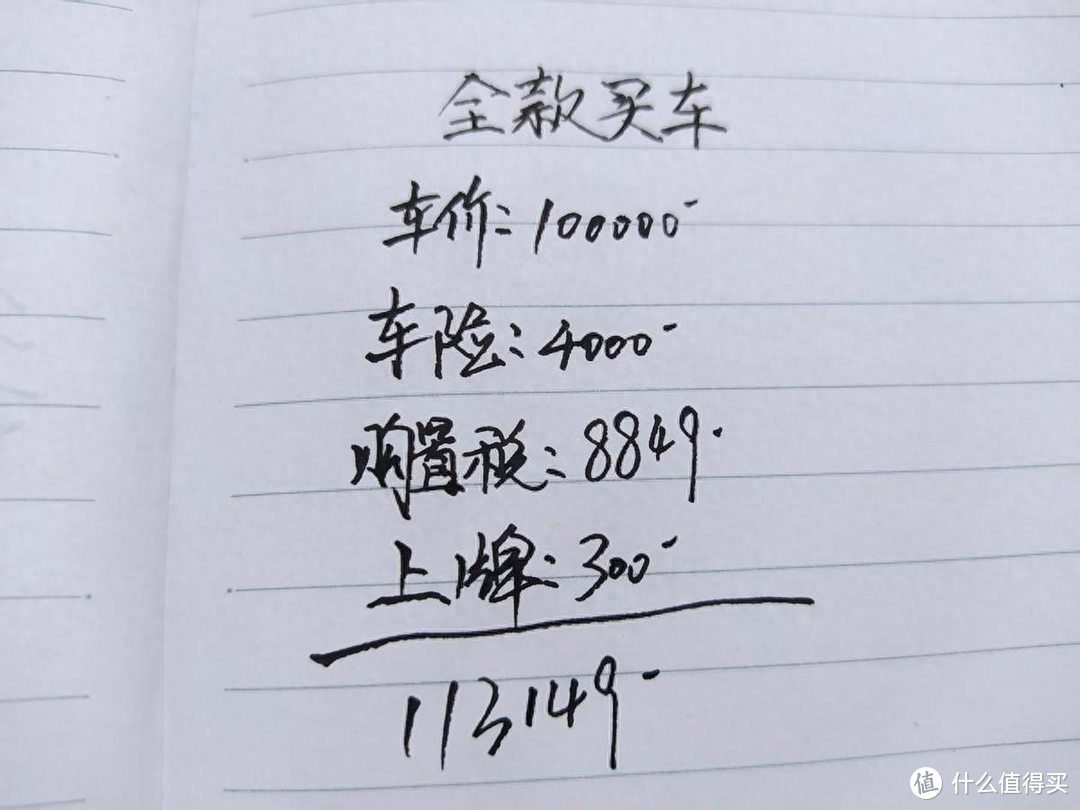 全款买车
车价：100000-
车险：4000-
购置税：8849.
上牌：300-
113149-
值 什么值得买